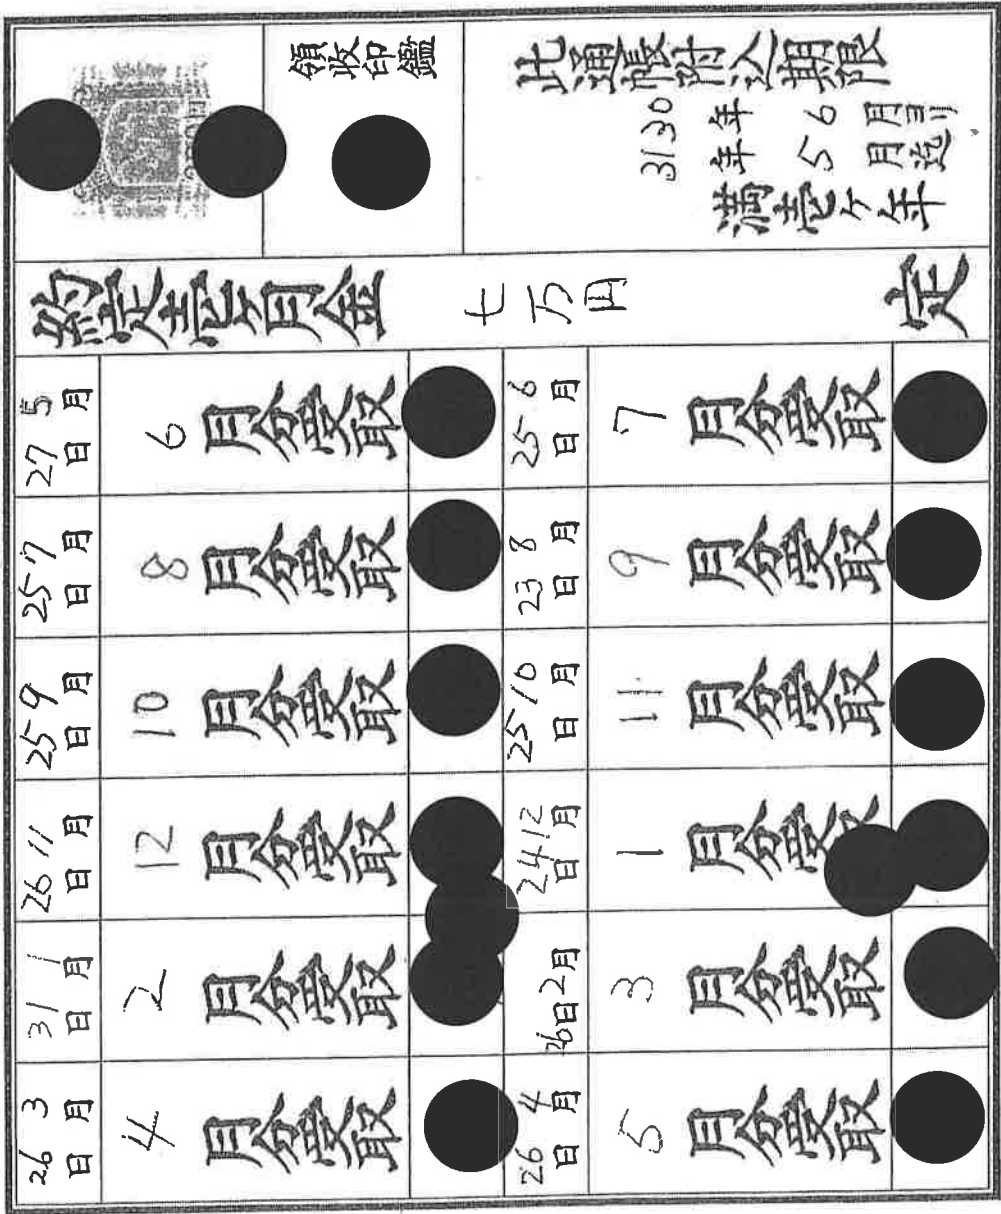 領收印鑑
此通帳附込期限
30年6月ヨリ
31年5月迄
満壱ヶ年
約定壱ヶ月金 七万円 定
5月27日 6月分受取
6月25日 7月分受取
7月25日 8月分受取
8月23日 9月分受取
9月25日 10月分受取
10月25日 11月分受取
11月26日 12月分受取
12月24日 1月分受
1月31日 2月分受取
2月26日 3月分受取
3月26日 4月分受取
4月26日 5月分受取